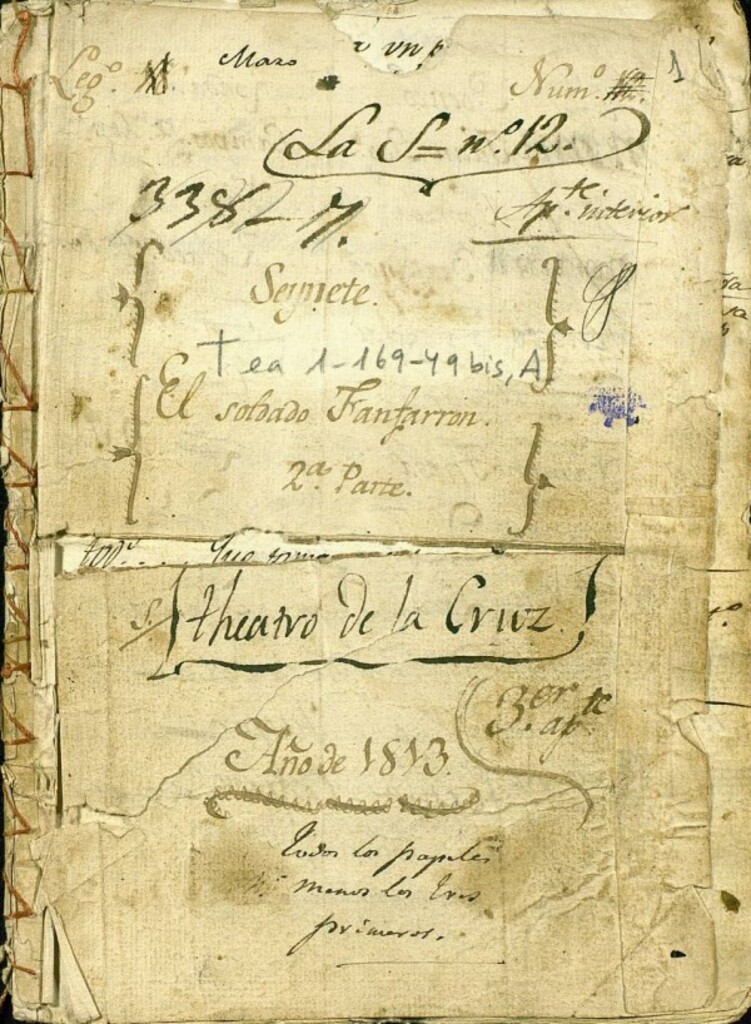 Mazo
Leg.º Num.º 1
La S= nº. 12.
3382-7. Ap.te interior
Seynete.
Tea 1-169-49 bis, A
El soldado Fanfarron.
2.ª Parte.
theatro de la Cruz
3.er ap.te
Año de 1813.
todos los papeles
menos los tres
primeros.